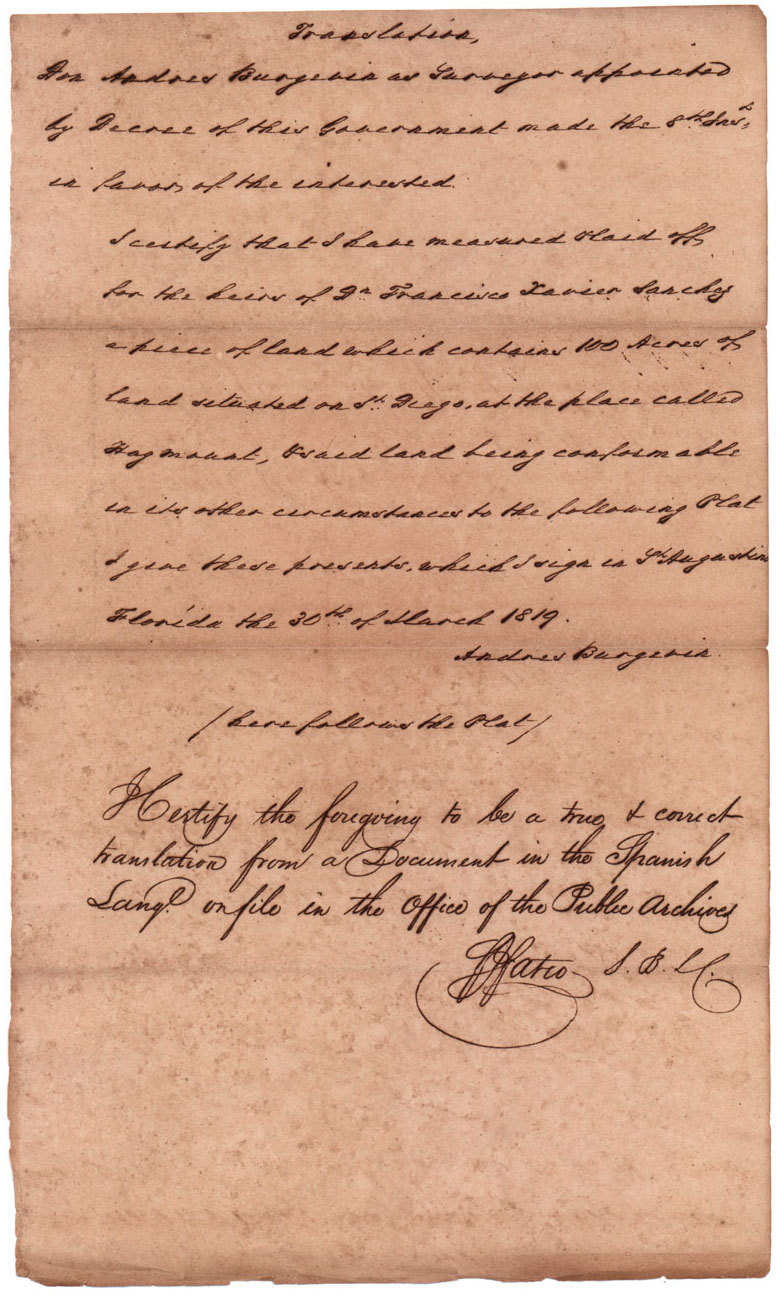 Translation,
Don Andres Burgevin as Surveyor appointed
by Decree of this Government made the 8th Inst,
in favor, of the interested.
I certify that I have measured & laid off
for the heirs of Dn Francisco Xavier Sanchez
a piece of land which contains 100 Acres of
land situated on St. Diego, at the place called
Hagmount, & said land being conformable
in its other circumstances to the following Plat
I give these presents, which I sign in St Augustine
Florida the 30th of March 1819.
Andres Burgevin.
(here follows the Plat)
I Certify the foregoing to be a true & correct
translation from a Document in the Spanish
Lange. on file in the Office of the Public Archives
Fatio S. B. L. C.